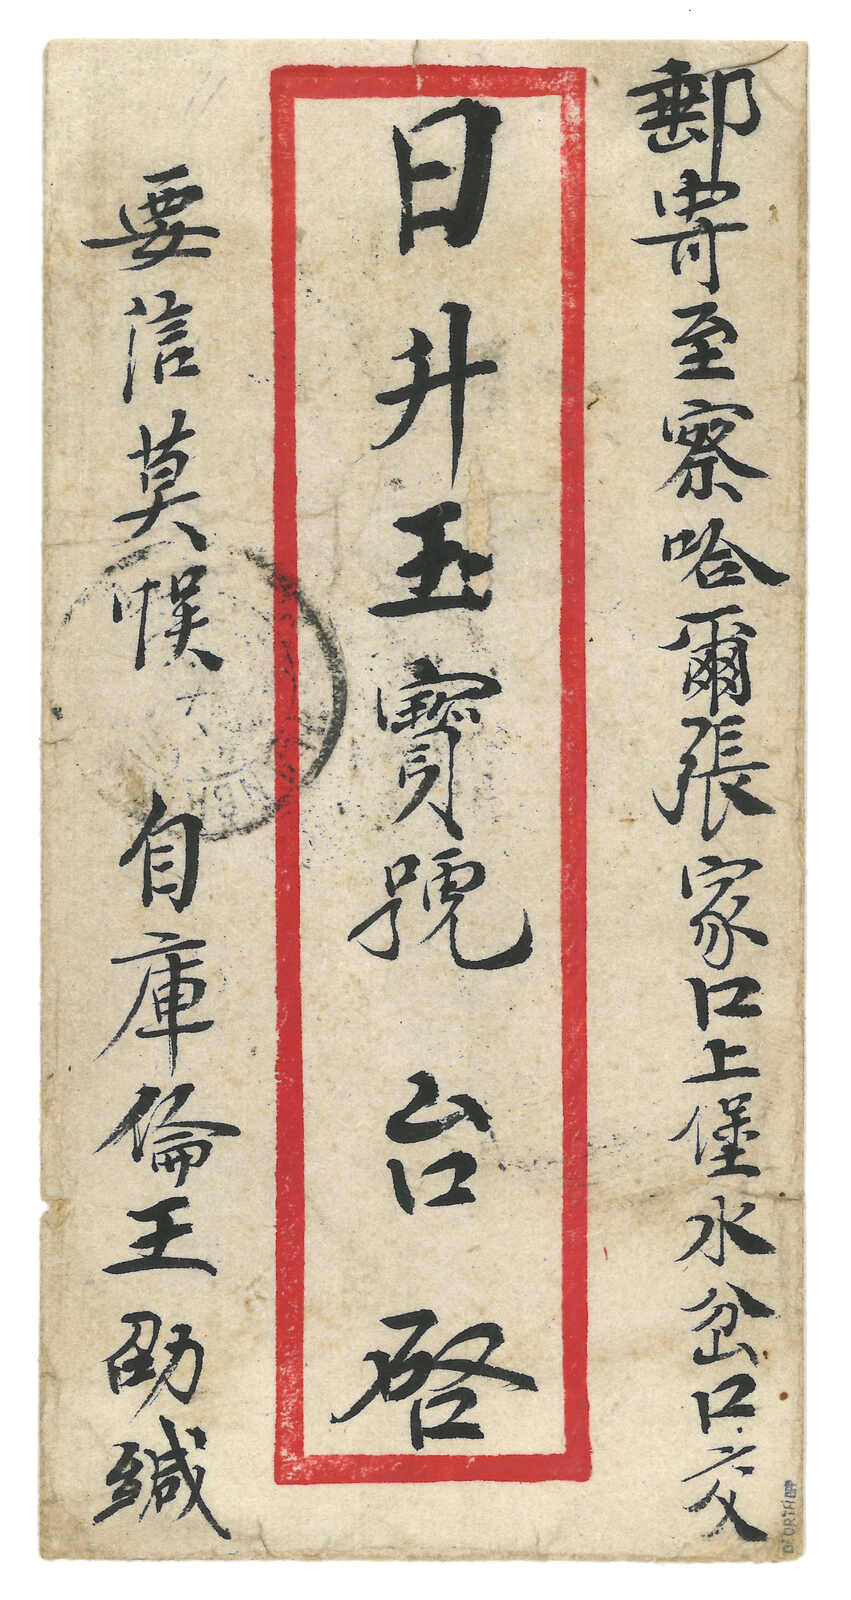 郵寄至察哈爾張家口上堡水岔口交
日升玉寳號台啓
要信莫悮 自庫倫王劭緘